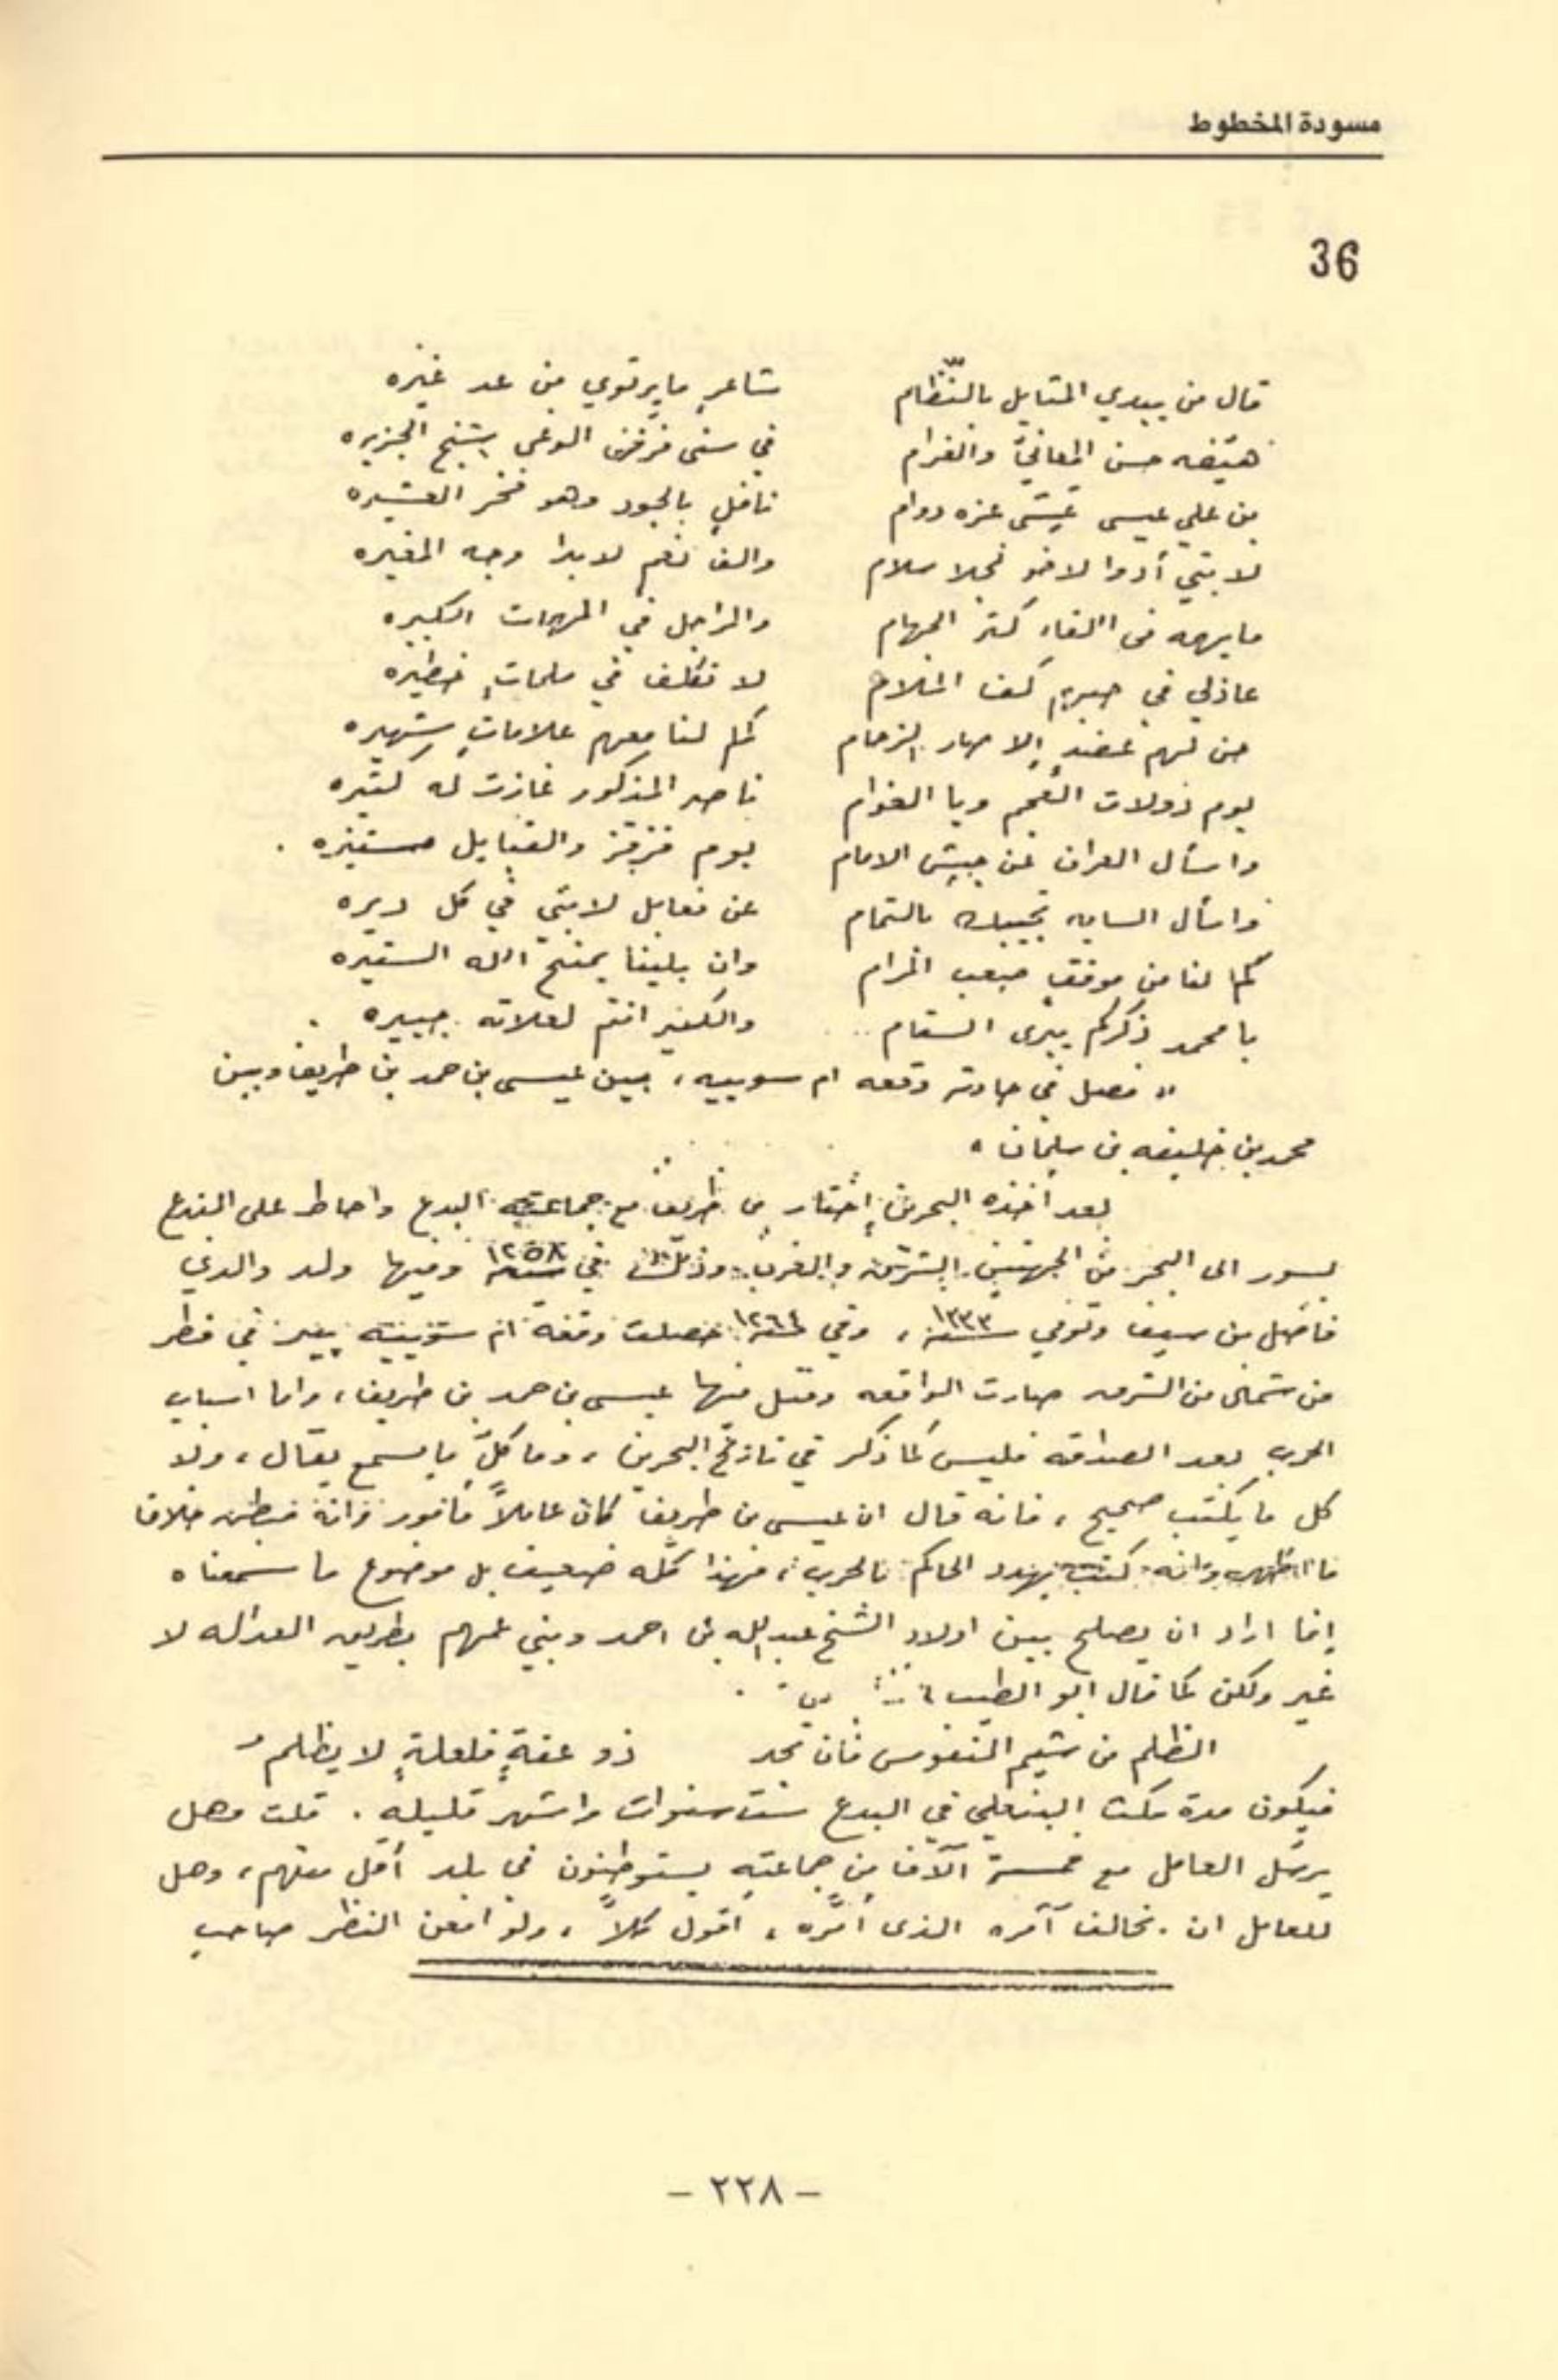 مسودة المخطوط
36
قال من يبدي المثايل بالنّظام شاعرٍ مايرتوي من عد غيره
هيّضه حسن المعاني والغرام في سنى فرقن الوغى الجزيره
بن علي عيسى عزه دوام نافلٍ بالجود وهو فخر العشيره
لابتي والف نعم لا بدا وجه المغيره
كثر الجهام والراجل في المهمات الكبيره
عاذلي في كف الملام لا تكلف في ملماتٍ خطيره
من لهم الزحام كم لنا معهم علاماتٍ شهيره
يوم دولات العجم ويا العوام ناصر المذكور غازت له كثيره
واسأل العران عن جيش الامام يوم قزقز والقبايل مستفزه .
واسأل السايه تجيبك بالتمام عن فعايل لابتي في كل ديره
كم لنا من موقفٍ صعب المرام وان بلينا يمنح الله الستيره
يا محمد ذكركم يبرى السقام والكسير انتم لعلاته جبيره .
« فصل في حادثه وقعه ام سوييه ، بين عيسى بن حمد بن طريف وبين
محمد بن خليفه بن سلمان »
بعد اخذه البحرين إختار بن طريف مع جماعته البدع واحاط على البدع
بسور الى البحر من الجهتين الشرق والغرب وذلك في سنة ١٢٥٨ وفيها ولد والدي
فاضل بن سيف وتوفي سنة ١٣٣٣ ، وفي سنة ١٢٦٤ حصلت وقعة ام سوييه بير في قطر
من شمال من الشرق صارت الواقعه وقتل فيها عيسى بن حمد بن طريف ، واما اسباب
الحرب بعد الصداقه فليس كما ذكر في تاريخ البحرين ، وما كلّ ما يسمع يقال ، ولا
كل ما يكتب صحيح ، فانه قال ان عيسى بن طريف كان عاملاً مأمور وانه مبطن خلاف
ما اظهر وانه كتب يهدد الحاكم بالحرب ، فهذا كله ضعيف بل موضوع ما سمعناه
إنما اراد ان يصلح بين اولاد الشيخ عبدالله بن احمد وبني عمهم بطريق العداله لا
غير ولكن كما قال ابو الطيب
الظلم من شيم النفوس فان تجد ذو عفةٍ فلعلةٍ لا يظلم
فيكون مدة مكث البنعلي في البدع ست سنوات واشهر قليله . قلت وهل
يرسل العامل مع خمسة آلاف من جماعته يستوطنون في بلد أقل منهم ، وهل
للعامل ان يخالف آمره الذى أمّره ، أقول كلاً ، ولو امعن النظر صاحب
- ٢٢٨ -